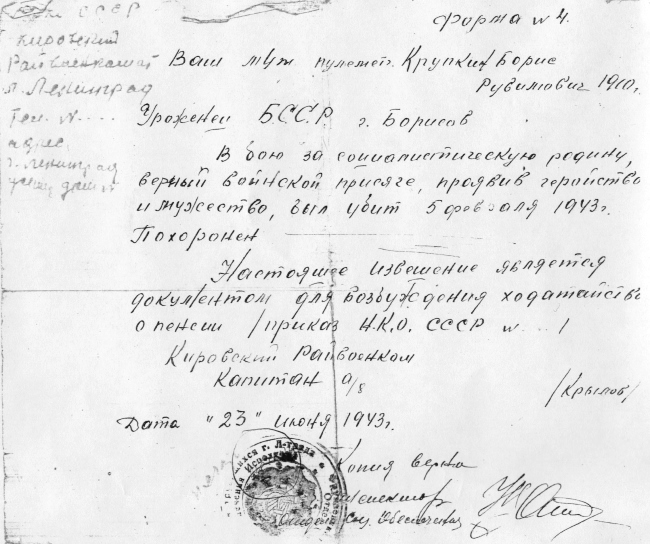 СССР
Форма № 4.
Кировский
Райвоенкомат
г. Ленинград
Тел. №....
адрес
г. Ленинград
Ваш муж пулемет. Крупкин Борис
Рувимович 1910г.
Уроженец Б.С.С.Р г. Борисов
В бою за социалистическую родину,
верный воинской присяге, проявив геройство
и мужество, был убит 5 февраля 1943г.
Похоронен
Настоящее извещение является
документом для возбуждения ходатайство
о пенсии /приказ Н.К.О. СССР №...../
Кировский Райвоенком
Капитан а/s /Крылов/
Дата "23" июня 1943г.
Копия верна
Инспектор
Соц. Обеспечения